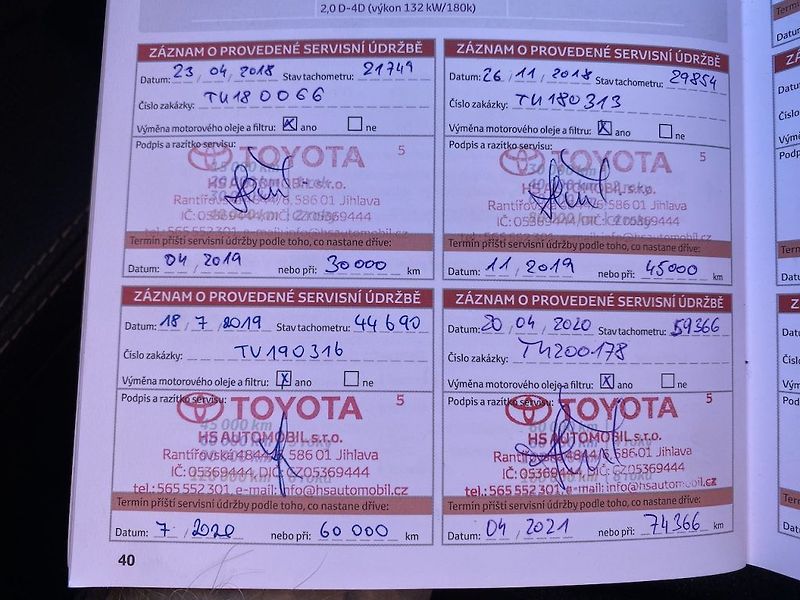 2,0 D-4D (výkon 132 kW/180k)
ZÁZNAM O PROVEDENÉ SERVISNÍ ÚDRŽBĚ
Datum: 23 , 04 , 2018 Stav tachometru: 21749
Číslo zakázky: TU180066
Výměna motorového oleje a filtru: X ano ne
Podpis a razítko servisu:
TOYOTA 5
HS AUTOMOBIL s.r.o.
Rantířovská 4844/6, 586 01 Jihlava
IČ: 05369444, DIČ: CZ05369444
tel.: 565 552 301, e-mail: info@hsautomobil.cz
Termín příští servisní údržby podle toho, co nastane dříve:
Datum: 04 , 2019 nebo při: 30000 km
ZÁZNAM O PROVEDENÉ SERVISNÍ ÚDRŽBĚ
Datum: 26 , 11 , 2018 Stav tachometru: 29854
Číslo zakázky: TU180313
Výměna motorového oleje a filtru: X ano ne
Podpis a razítko servisu:
TOYOTA 5
HS AUTOMOBIL s.r.o.
Rantířovská 4844/6, 586 01 Jihlava
IČ: 05369444, DIČ: CZ05369444
tel.: 565 552 301, e-mail: info@hsautomobil.cz
Termín příští servisní údržby podle toho, co nastane dříve:
Datum: 11 , 2019 nebo při: 45000 km
ZÁZNAM O PROVEDENÉ SERVISNÍ ÚDRŽBĚ
Datum: 18 , 7 , 2019 Stav tachometru: 44690
Číslo zakázky: TU190316
Výměna motorového oleje a filtru: X ano ne
Podpis a razítko servisu:
TOYOTA 5
45 000 km
HS AUTOMOBIL s.r.o.
Rantířovská 4844/6, 586 01 Jihlava
IČ: 05369444, DIČ: CZ05369444
tel.: 565 552 301, e-mail: info@hsautomobil.cz
Termín příští servisní údržby podle toho, co nastane dříve:
Datum: 7 , 2020 nebo při: 60 000 km
ZÁZNAM O PROVEDENÉ SERVISNÍ ÚDRŽBĚ
Datum: 20 , 04 , 2020 Stav tachometru: 59366
Číslo zakázky: TU200178
Výměna motorového oleje a filtru: X ano ne
Podpis a razítko servisu:
TOYOTA 5
HS AUTOMOBIL s.r.o.
Rantířovská 4844/6, 586 01 Jihlava
IČ: 05369444, DIČ: CZ05369444
tel.: 565 552 301, e-mail: info@hsautomobil.cz
Termín příští servisní údržby podle toho, co nastane dříve:
Datum: 04 , 2021 nebo při: 74366 km
40